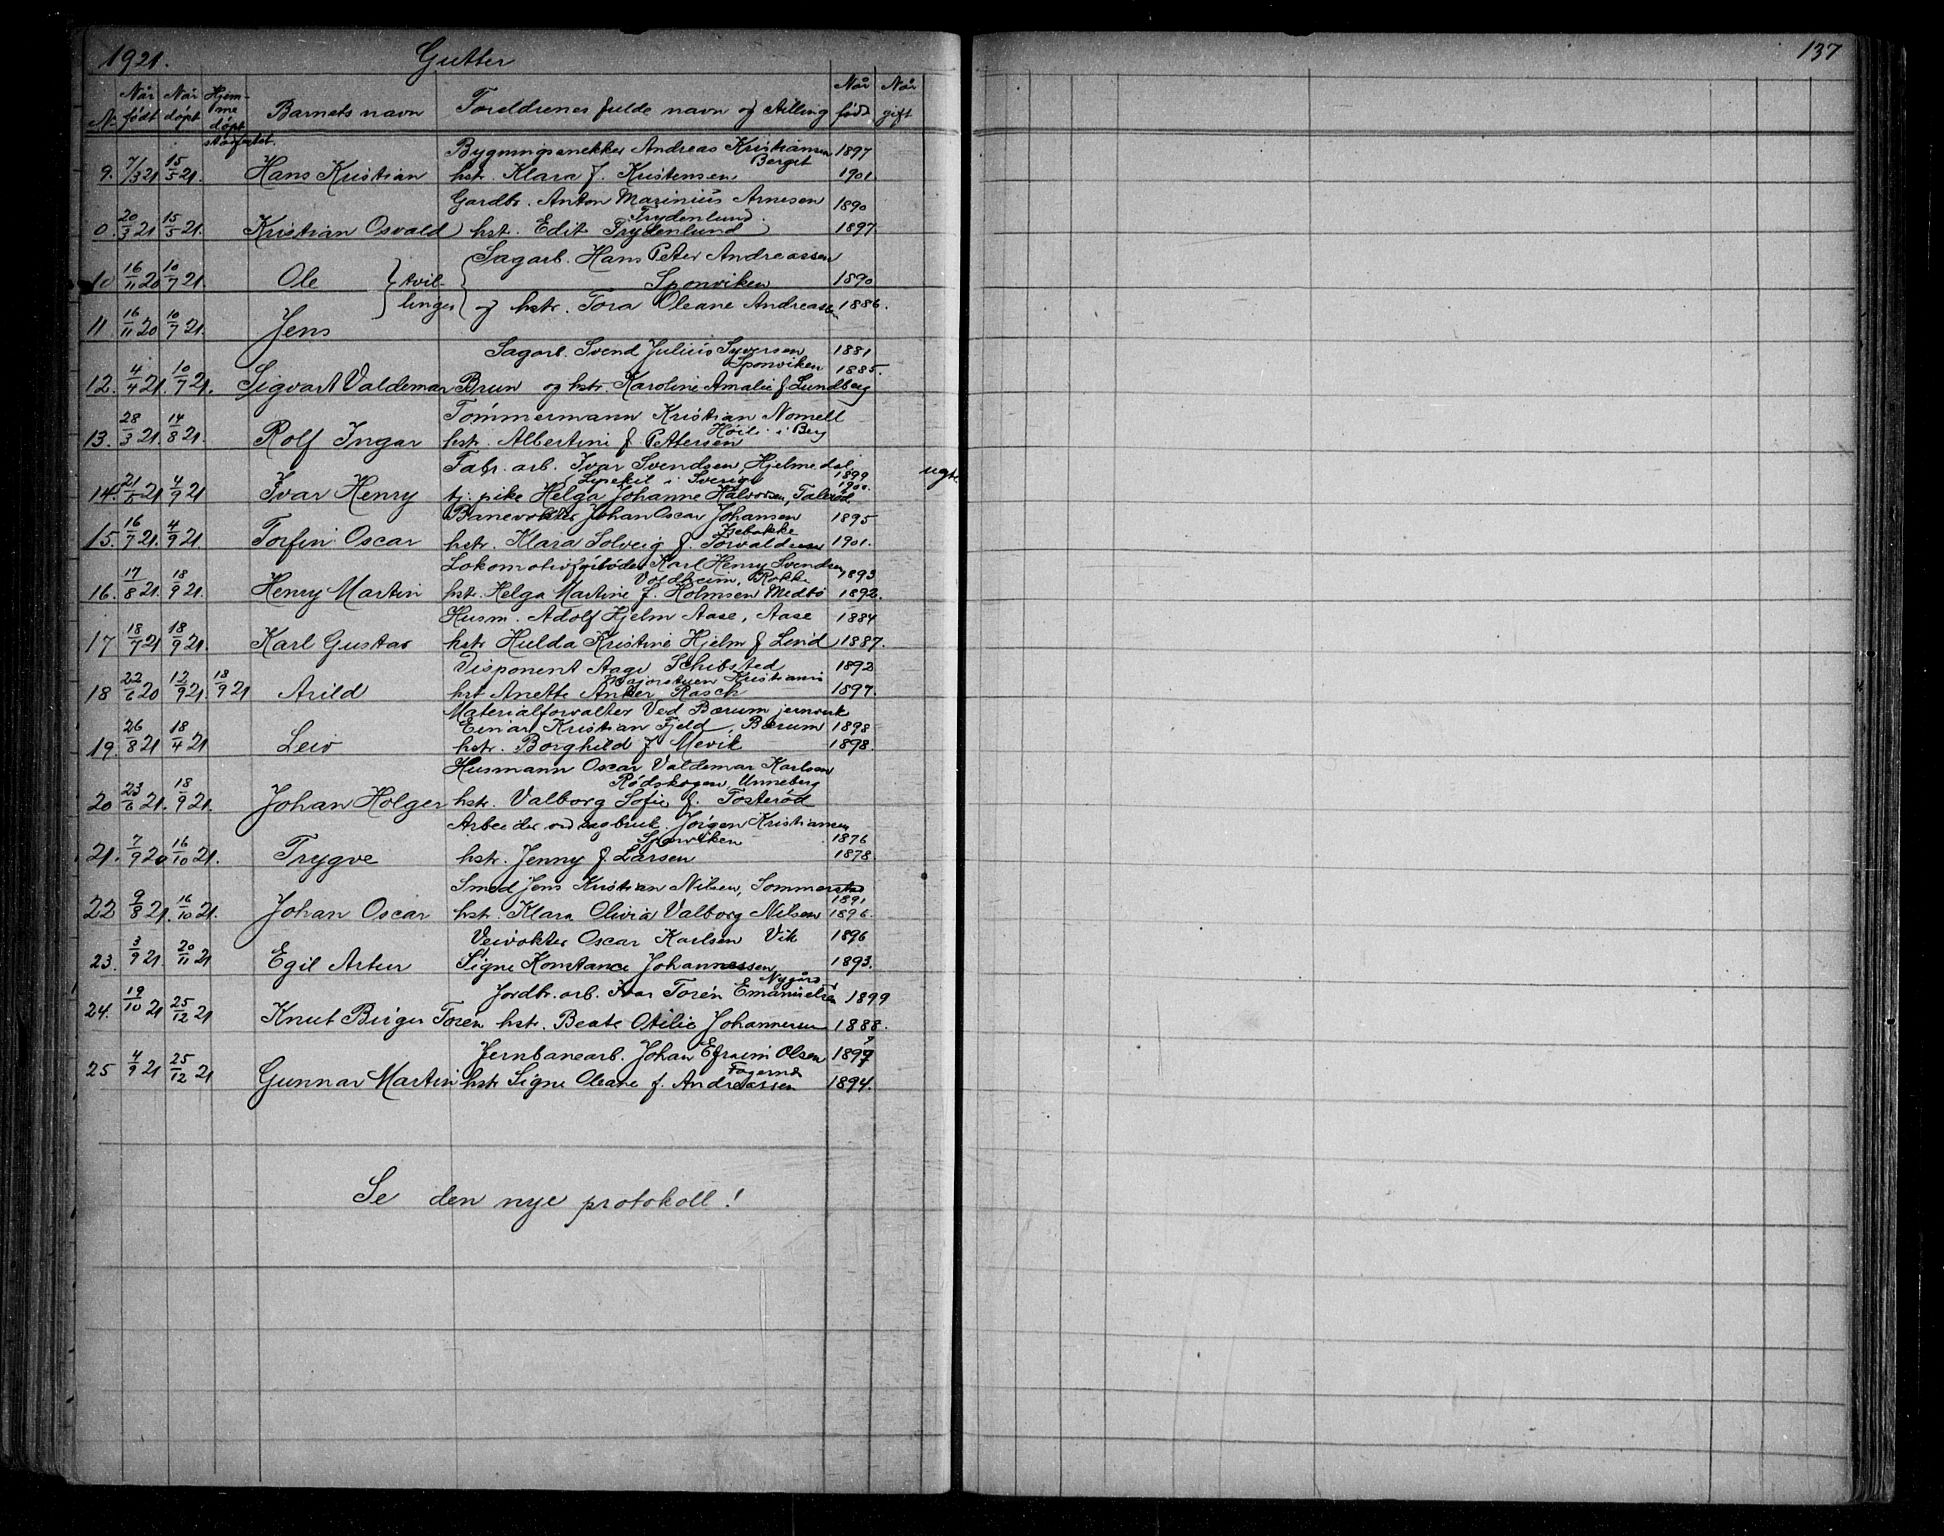 1921. Gutter 137
No Når født Når døpt Hjemmedøpt stadfestet. Barnets navn Foreldrenes fulde navn og stilling Når født Når gift
Bygningssnekker Andreas Kristiansen 1897
Berget
9. 7/3 21 15/5 21. Hans Kristian hstr. Klara f. Kristensen 1901
Gardbr. Anton Marinius Arnesen 1890
Frydenlund.
0. 20/3 21 15/5 21. Kristian Osvald hst. Edit Frydenlund 1897
Sagarb. Hans Peter Andreassen
10 16/11 20 10/7 21. Ole tvil- Sponviken 1890
linger og hstr. Tora Oleane Andreassen 1886.
11 16/11 20 10/7 21. Jens
Sagarb. Svend Julius Syversen 1881
Sponviken 1885.
12. 4/4 21. 10/7 21. Sigvart Valdemar Brun og hstr. Karoline Amalie f. Lundberg
Tömmermann Kristian Nomell
Höili i Berg
13. 28/3 21. 14/8 21. Rolf Ingar hstr. Albertine f. Pettersen
Fabr. arb. Ivar Svendsen, Hjelmedal
Lysekil i Sverige 1899
1900.
14. 21 4/9 21 Ivar Henry tj. pike Helga Johanne Halvorsen, ugte
Banevokter Johan Oscar Johansen 1895
15. 16/7 21. 4/9 21. Torfin Oscar hstr. Klara Solveig f. Torvaldsen 1901.
Lokomotivfyrböder Karl Henry Svendsen 1893
Voldheim, Rokke
16. 17/8 21. 18/9 21. Henry Martin hst. Helga Martine f. Holmsen Medbö 1892.
Husm. Adolf Hjelm Aase, Aase 1884
17 18/7 21 18/9 21. Karl Gustav hstr Hulda Kristine Hjelm f Lind 1887.
Disponent Aage Schibsted 1892
Majorstuen Kristiania
18 22/6 20 12/9 21. 18/9 21 Arild hst Anette Anker Rasch 1897.
Materialforvalter Ved Bærum jernverk
Einar Kristian Fjeld, Bærum 1898
19. 26/8 21 18/4 21 Leiv hstr. Borghild f Mevik 1898.
Husmann Oscar Valdemar Karlsen
Rødskogen, Unneberg
20 23/6 21. 18/9 21. Johan Holger hstr. Valborg Sofie f. Tosterød
Arbeider ved sagbruk. Jörgen Kristiansen
Sponviken 1876
21. 7/9 20 16/10 21. Trygve hstr. Jenny f. Larsen 1878
Smed Jens Kristian Nilsen, Sommerstad
1891
22 9/8 21. 16/10 21. Johan Oscar hstr. Klara Olivia Valborg Nilsen 1896.
Veivokter Oscar Karlsen Vik 1896
23. 3/9 21. 20/11 21 Egil Artur Signe Konstance Johannessen 1893.
Nygård
Jordbr. arb. Ivar Torén Emanuelsen 1899
24. 19/10 21 25/12 21 Knut Birger Torén hstr. Beate Otilie Johannessen 1888.
Jernbanearb. Johan Efraim Olsen 1897
Fagernes
25 4/9 21 25/12 21 Gunnar Martin hstr Signe Oleane f. Andreassen 1894.
Se den nye protokoll!